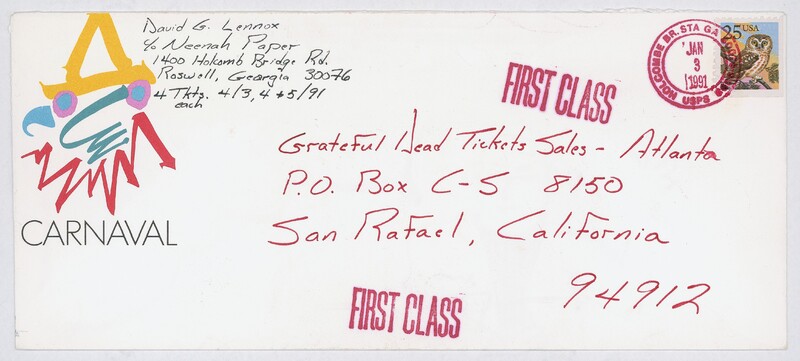 David G. Lennox
c/o Neenah Paper
1400 Holcomb Bridge Rd.
Roswell, Georgia 30076
4 Tkts. 4/3, 4 + 5/91
each
CARNAVAL
25 USA
HOLCOMBE BR. STA GA
JAN
3
1991
USPS
FIRST CLASS
Grateful Dead Tickets Sales - Atlanta
P.O. Box C-S 8150
San Rafael, California
94912
FIRST CLASS